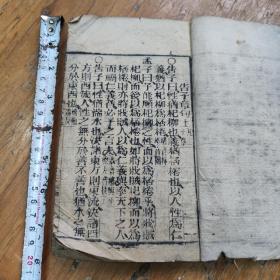 告子章句上
○告子曰性猶杞柳也義猶桮棬也以人性爲仁
義猶以杞柳爲桮棬
孟子曰子能順杞柳之性而以爲桮棬乎將戕賊
杞柳而後以爲桮棬也如將戕賊杞柳而以爲
桮棬則亦將戕賊人以爲仁義與率天下之人
而禍仁義者必子之言夫
○告子曰性猶湍水也決諸東方則東流決諸西
方則西流人性之無分於善不善也猶水之無
分於東西也